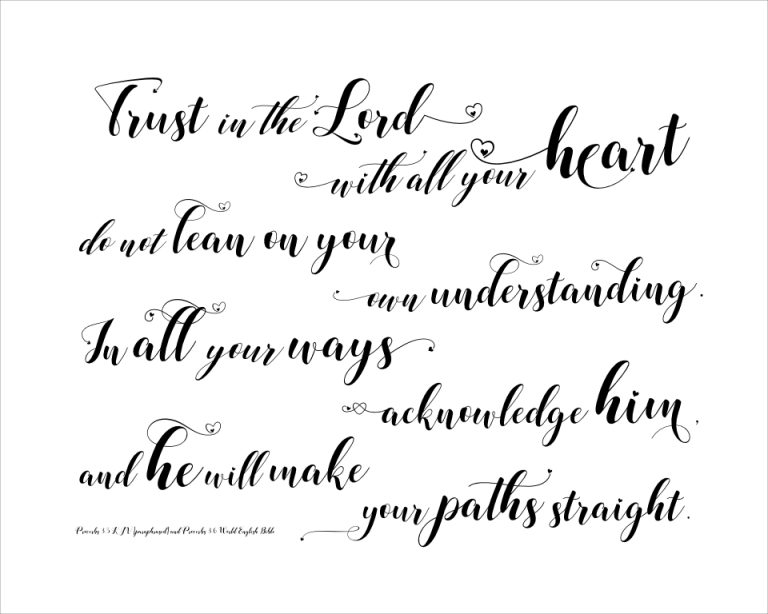 Trust in the Lord
with all your heart
do not lean on your
own understanding.
In all your ways
acknowledge him,
and he will make
your paths straight.
Proverbs 3:5 (paraphrased) and Proverbs 3:6 World English Bible